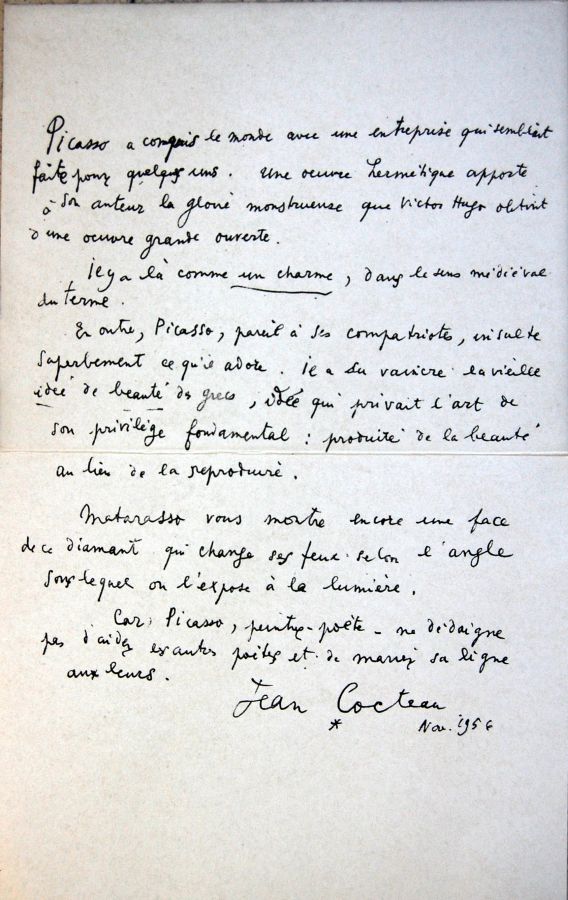 Picasso a conquis le monde avec une entreprise qui semblait
faite pour quelques uns. Une oeuvre hermétique apporte
à son auteur la gloire monstrueuse que Victor Hugo obtint
d'une oeuvre grande ouverte.
Il y a là comme un charme, dans le sens médiéval
du terme.
En outre, Picasso, pareil à ses compatriotes, insulte
superbement ce qu'il adore. Il a su vaincre la vieille
idée de beauté des grecs, idée qui privait l'art de
son privilège fondamental : produire de la beauté
au lieu de la reproduire.
Matarasso vous montre encore une face
de ce diamant qui change ses feux selon l'angle
sous lequel on l'expose à la lumière.
Car, Picasso, peintre-poète - ne dédaigne
pas d'aider les autres poètes et de marier sa ligne
aux leurs.
Jean Cocteau
* Nov. 1956